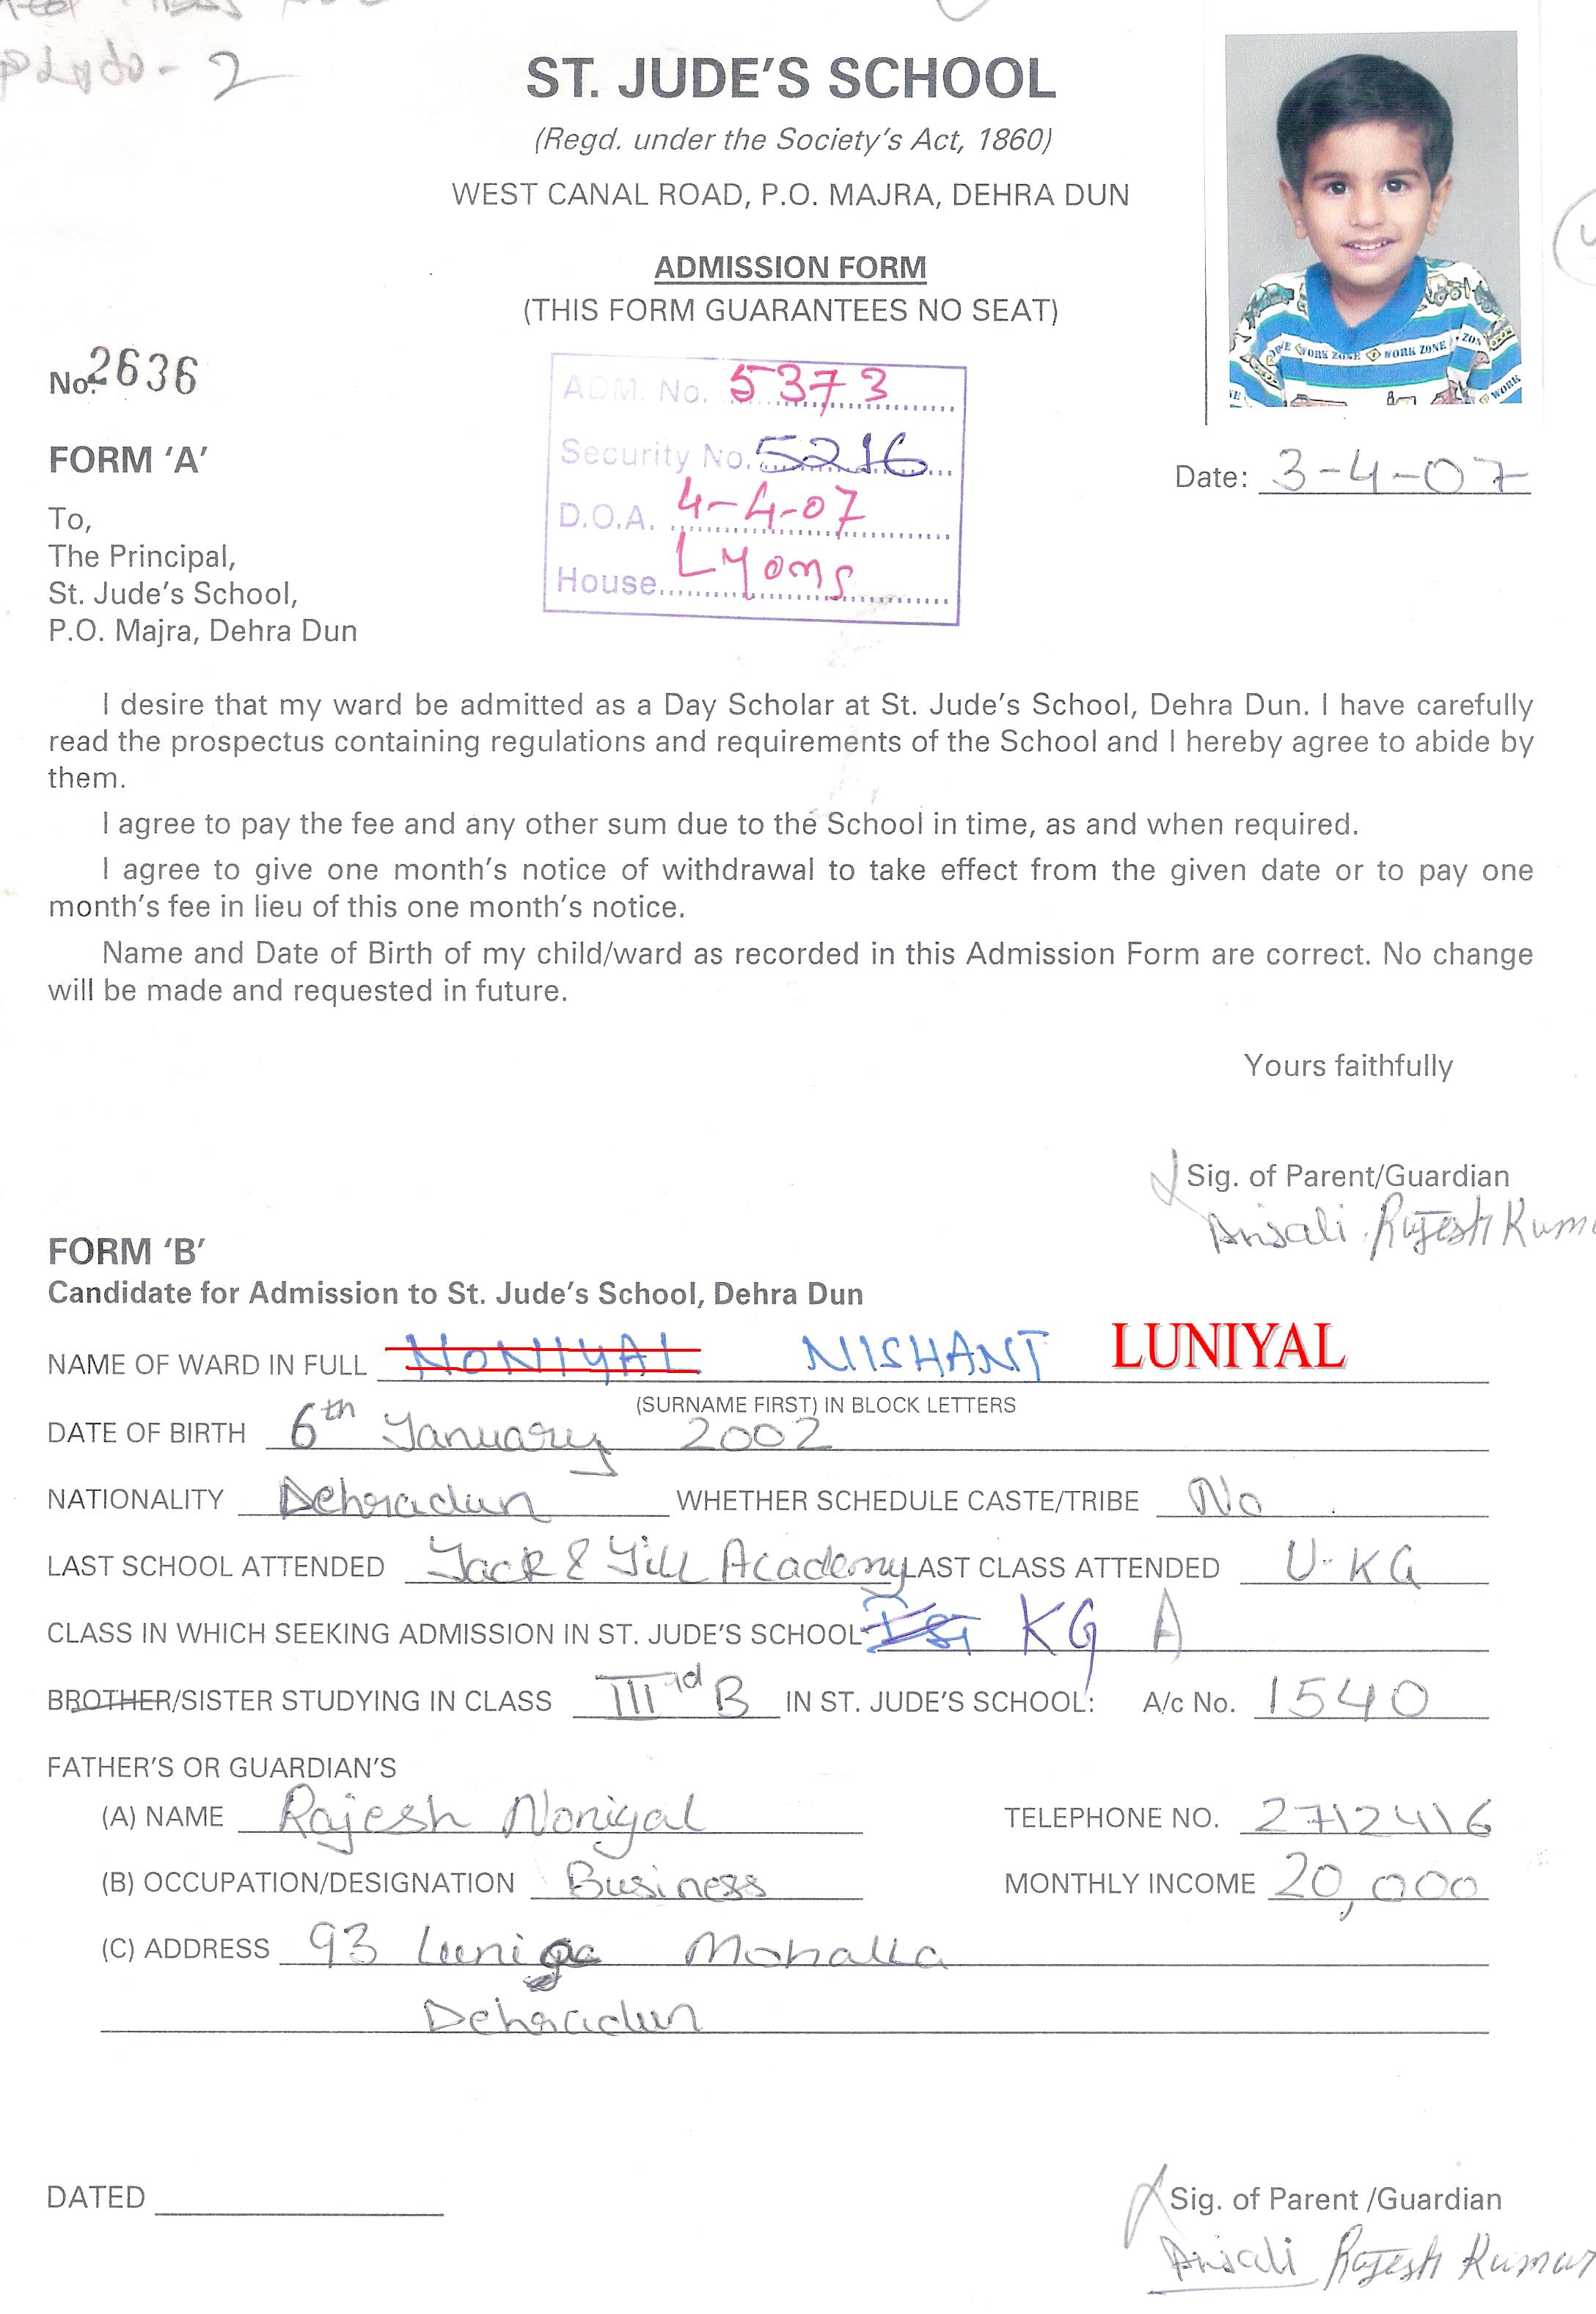 2
ST. JUDE'S SCHOOL
(Regd. under the Society's Act, 1860)
WEST CANAL ROAD, P.O. MAJRA, DEHRA DUN
ADMISSION FORM
(THIS FORM GUARANTEES NO SEAT)
WORK ZONE WORK ZONE ZON
WORK
No. 2636
ADM. No. 5373
Security No. 5216
D.O.A. 4-4-07
House Lyons
FORM 'A'
Date: 3-4-07
To,
The Principal,
St. Jude's School,
P.O. Majra, Dehra Dun
I desire that my ward be admitted as a Day Scholar at St. Jude's School, Dehra Dun. I have carefully
read the prospectus containing regulations and requirements of the School and I hereby agree to abide by
them.
I agree to pay the fee and any other sum due to the School in time, as and when required.
I agree to give one month's notice of withdrawal to take effect from the given date or to pay one
month's fee in lieu of this one month's notice.
Name and Date of Birth of my child/ward as recorded in this Admission Form are correct. No change
will be made and requested in future.
Yours faithfully
Sig. of Parent/Guardian
Anjali Rajesh Kuma
FORM 'B'
Candidate for Admission to St. Jude's School, Dehra Dun
NAME OF WARD IN FULL NONIYAL NISHANT LUNIYAL
(SURNAME FIRST) IN BLOCK LETTERS
DATE OF BIRTH 6th January 2002
NATIONALITY Dehradun WHETHER SCHEDULE CASTE/TRIBE No
LAST SCHOOL ATTENDED Jack & Jill Academy LAST CLASS ATTENDED U.KG
CLASS IN WHICH SEEKING ADMISSION IN ST. JUDE'S SCHOOL Ist KG A
BROTHER/SISTER STUDYING IN CLASS III rd B IN ST. JUDE'S SCHOOL: A/c No. 1540
FATHER'S OR GUARDIAN'S
(A) NAME Rajesh Noniyal TELEPHONE NO. 2712416
(B) OCCUPATION/DESIGNATION Business MONTHLY INCOME 20,000
(C) ADDRESS 93 Mohalla
Dehradun
DATED
Sig. of Parent /Guardian
Anjali Rajesh Kumar